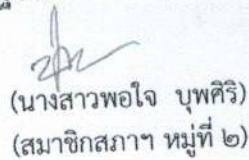 (นางสาวพอใจ บุพศิริ)
(สมาชิกสภาฯ หมู่ที่ ๒)